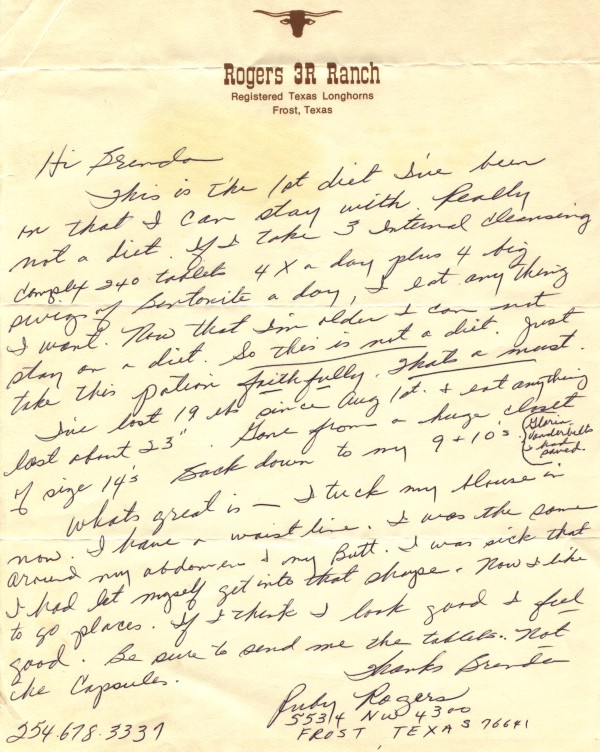 Rogers 3R Ranch
Registered Texas Longhorns
Frost, Texas
Hi Brenda
This is the 1st diet I've been
on that I can stay with. Really
not a diet. If I take 3 Internal Cleansing
Complx 240 tablets 4X a day plus 4 big
swigs of Bentonite a day, I eat any thing
I want. Now that I'm older I can not
stay on a diet. So this is not a diet. Just
take this potion faithfully. Thats a must.
I've lost 19 lbs since Aug 1st. & eat anything
lost about 23". Gone from a huge closet
of size 14's Back down to my 9 + 10's
Gloria
Vanderbelts
I had
saved.
Whats great is — I tuck my blouse in
now. I have a waist line. I was the same
around my abdomen & my Butt. I was sick that
I had let myself get into that shape. Now I like
to go places. If I think I look good I feel
good. Be sure to send me the tablets. Not
the Capsules.
Thanks Brenda
Ruby Rogers
5534 NW 4300
FROST TEXAS 76641
254-678-3337